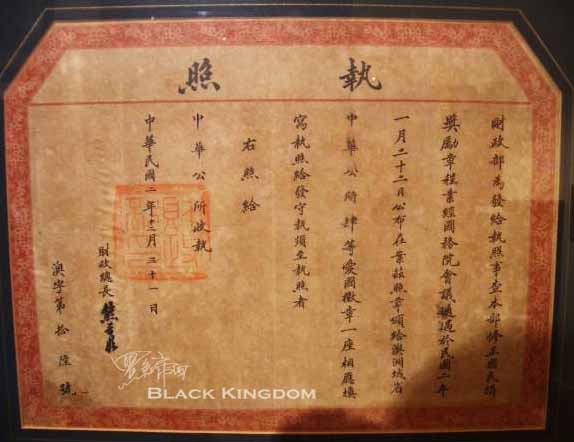 執照
財政部為發給執照事查本部修正國民捐
獎勵章程業經國務院會議通過於民國二年
一月二十二日公布在案茲照章頒給澳洲域省
中華公所肆等愛國徽章一座相應填
寫執照給發守執須至執照者
右照給
中華公所收執
中華民國二年十二月三十一日
財政總長熊希齡
澳字第拾陸號
BLACK KINGDOM